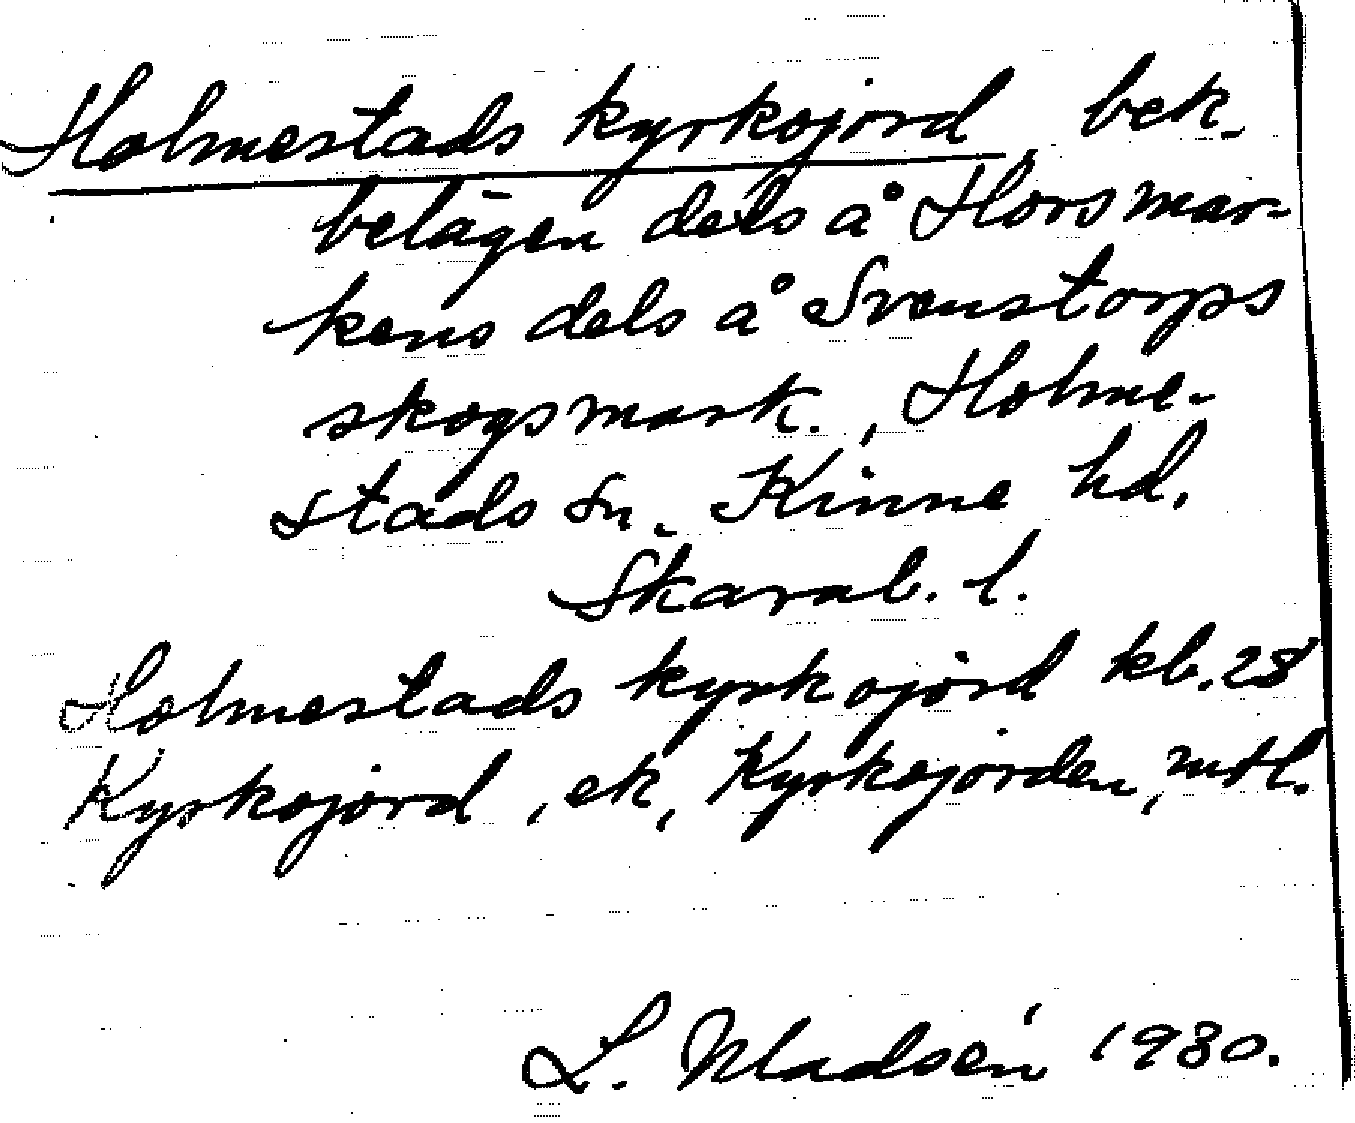 Holmestads kyrkojord, bek.
belägen dels å Horsmar-
kens dels å Svenstorps
skogsmark., Holme-
stads sn. Kinne hd.
Skarab. l.
Holmestads kyrkojord kb. 28
Kyrkojord, ek, Kyrkojorden, mtl.
L. Madsén 1930.